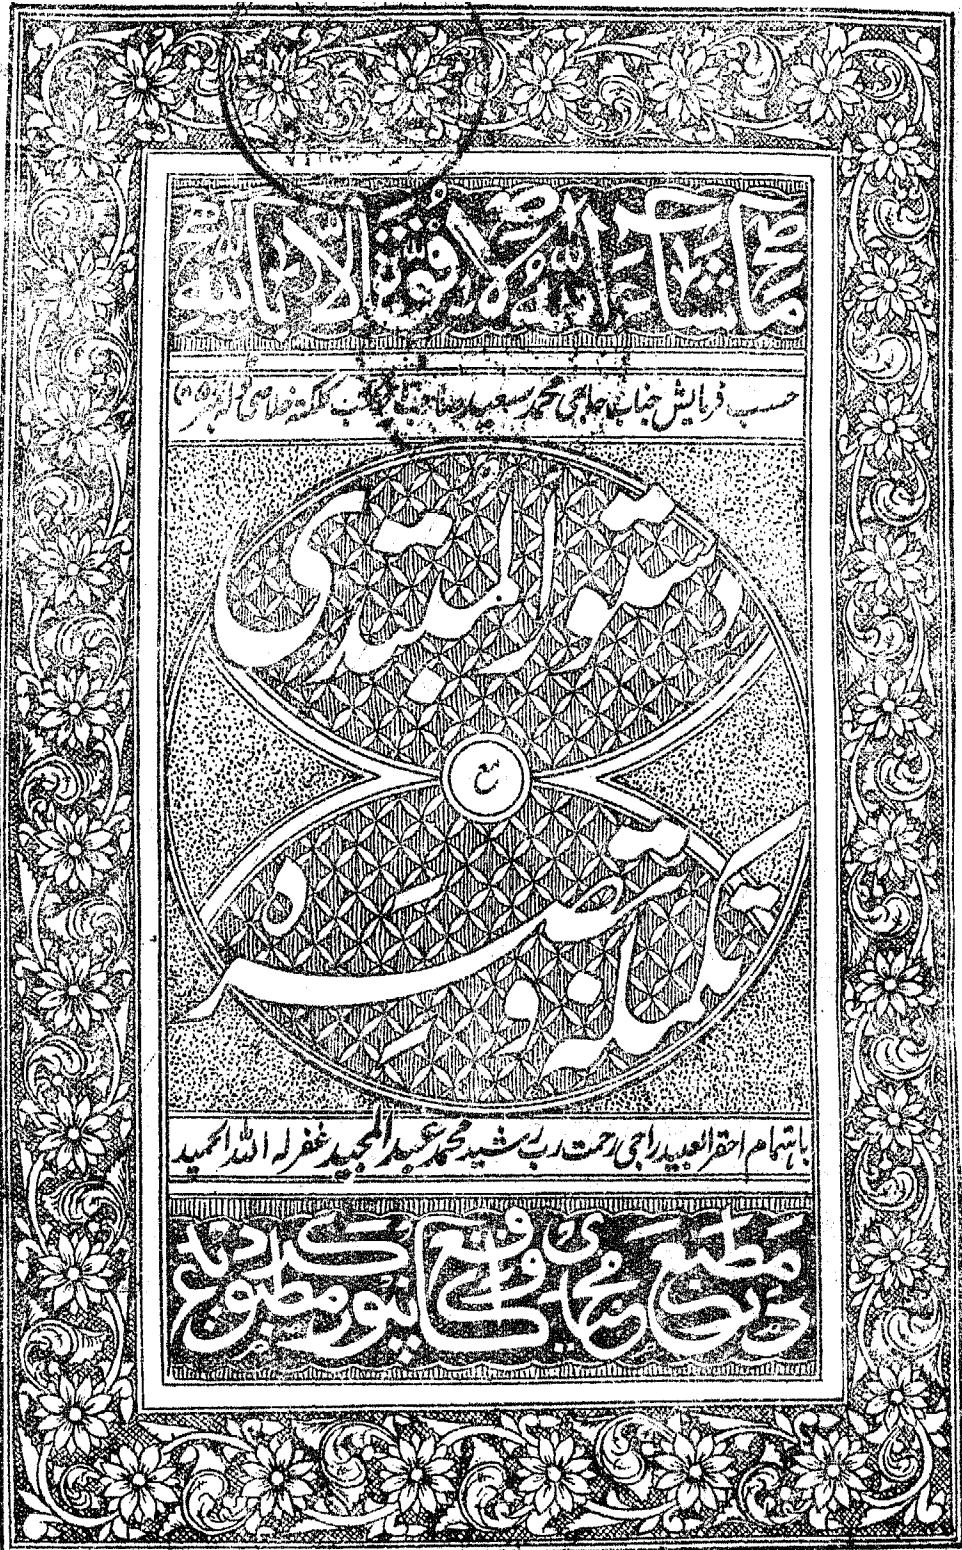 ما شاء الله لا قوة الا بالله
حسب فرمایش جناب حاجی محمد سعید صاحب تاجر کتب کلکته خلاصی ٹوله نمبر (۸۵)
دستور المبتدی
مع
تکمله و تبصره
باهتمام احقر العبید راجی رحمت رب رشید محمد عبدالمجید غفر له الله الحمید
در مطبع مجیدی واقع
کانپور مطبوع گردید